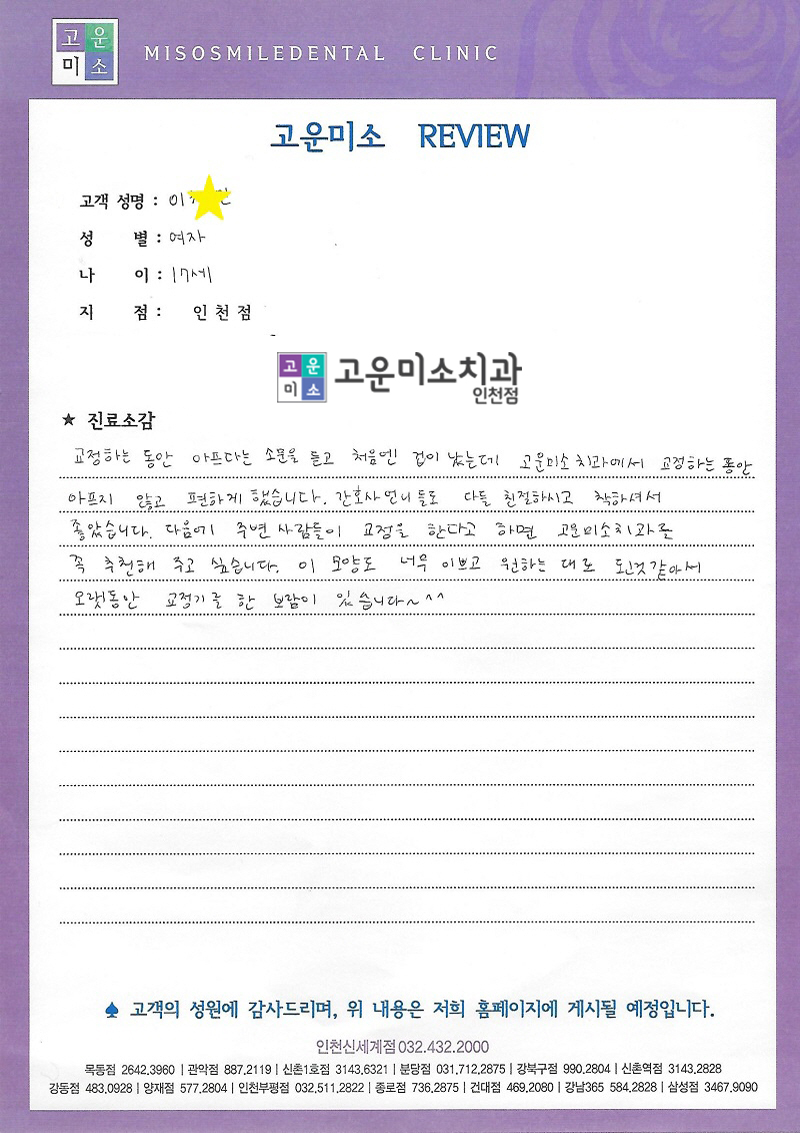 고운미소 MISOSMILEDENTAL CLINIC
고운미소 REVIEW
고객 성명 : 이
성 별 : 여자
나 이 : 17세
지 점 : 인천점
고운미소 고운미소치과
인천점
★ 진료소감
교정하는 동안 아프다는 소문을 듣고 처음엔 겁이 났는데 고운미소치과에서 교정하는 동안
아프지 않고 편하게 했습니다. 간호사언니들도 다들 친절하시고 착하셔서
좋았습니다. 다음에 주변 사람들이 교정을 한다고 하면 고운미소치과를
꼭 추천해 주고 싶습니다. 이 모양도 너무 이쁘고 원하는 대로 된것같아서
오랫동안 교정기를 한 보람이 있습니다~^^
♠ 고객의 성원에 감사드리며, 위 내용은 저희 홈페이지에 게시될 예정입니다.
인천신세계점 032.432.2000
목동점 2642.3960 | 관악점 887.2119 | 신촌1호점 3143.6321 | 분당점 031.712.2875 | 강북구점 990.2804 | 신촌역점 3143.2828
강동점 483.0928 | 양재점 577.2804 | 인천부평점 032.511.2822 | 종로점 736.2875 | 건대점 469.2080 | 강남365 584.2828 | 삼성점 3467.9090